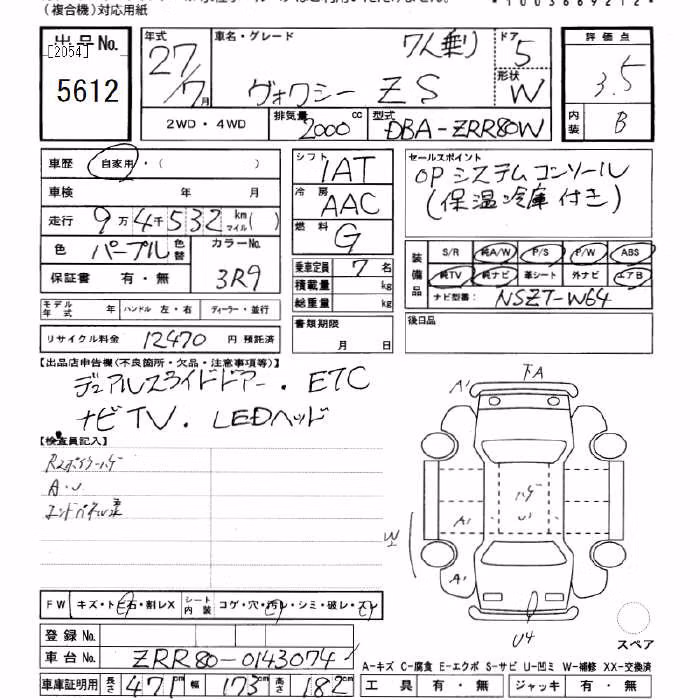 (複合機)対応用紙
出品No.
[2054]
5612
年式 27/7月
車名・グレード 7人乗り
ヴォクシー ZS
ドア 5
形状 W
評価点 3.5
内装 B
2WD・4WD
排気量 2000cc
型式 DBA-ZRR80W
車歴 自家用・( )
車検 年 月
走行 9万4千532km マイル( )
色 パープル 色替 カラーNo. 3R9
保証書 有・無
モデル年式 年 ハンドル 左・右 ディーラー・並行
リサイクル料金 12470 円 預託済
シフト IAT
冷房 AAC
燃料 G
乗車定員 7 名
積載量 kg
総重量 kg
書類期限 月 日
セールスポイント
OPシステムコンソール
(保温冷庫付き)
装備品 S/R 純A/W P/S P/W ABS
純TV 純ナビ 革シート 外ナビ エアB
ナビ型番: NSZT-W64
後日品
【出品店申告欄(不良箇所・欠品・注意事項等)】
デュアルスライドドアー・ETC
ナビTV・LEDヘッド
【検査員記入】
A・U
下A
A'
ハゲ
A'
W
A'
U4
スペア
FW キズ・トビ石・割レX シート内装 コゲ・穴・汚レ・シミ・破レ・スレ
登録No.
車台No. ZRR80-0143074
車庫証明用 長さ 471cm 幅 173cm 高さ 182cm
A-キズ C-腐食 E-エクボ S-サビ U-凹ミ W-補修 XX-交換済
工具 有・無 ジャッキ 有・無